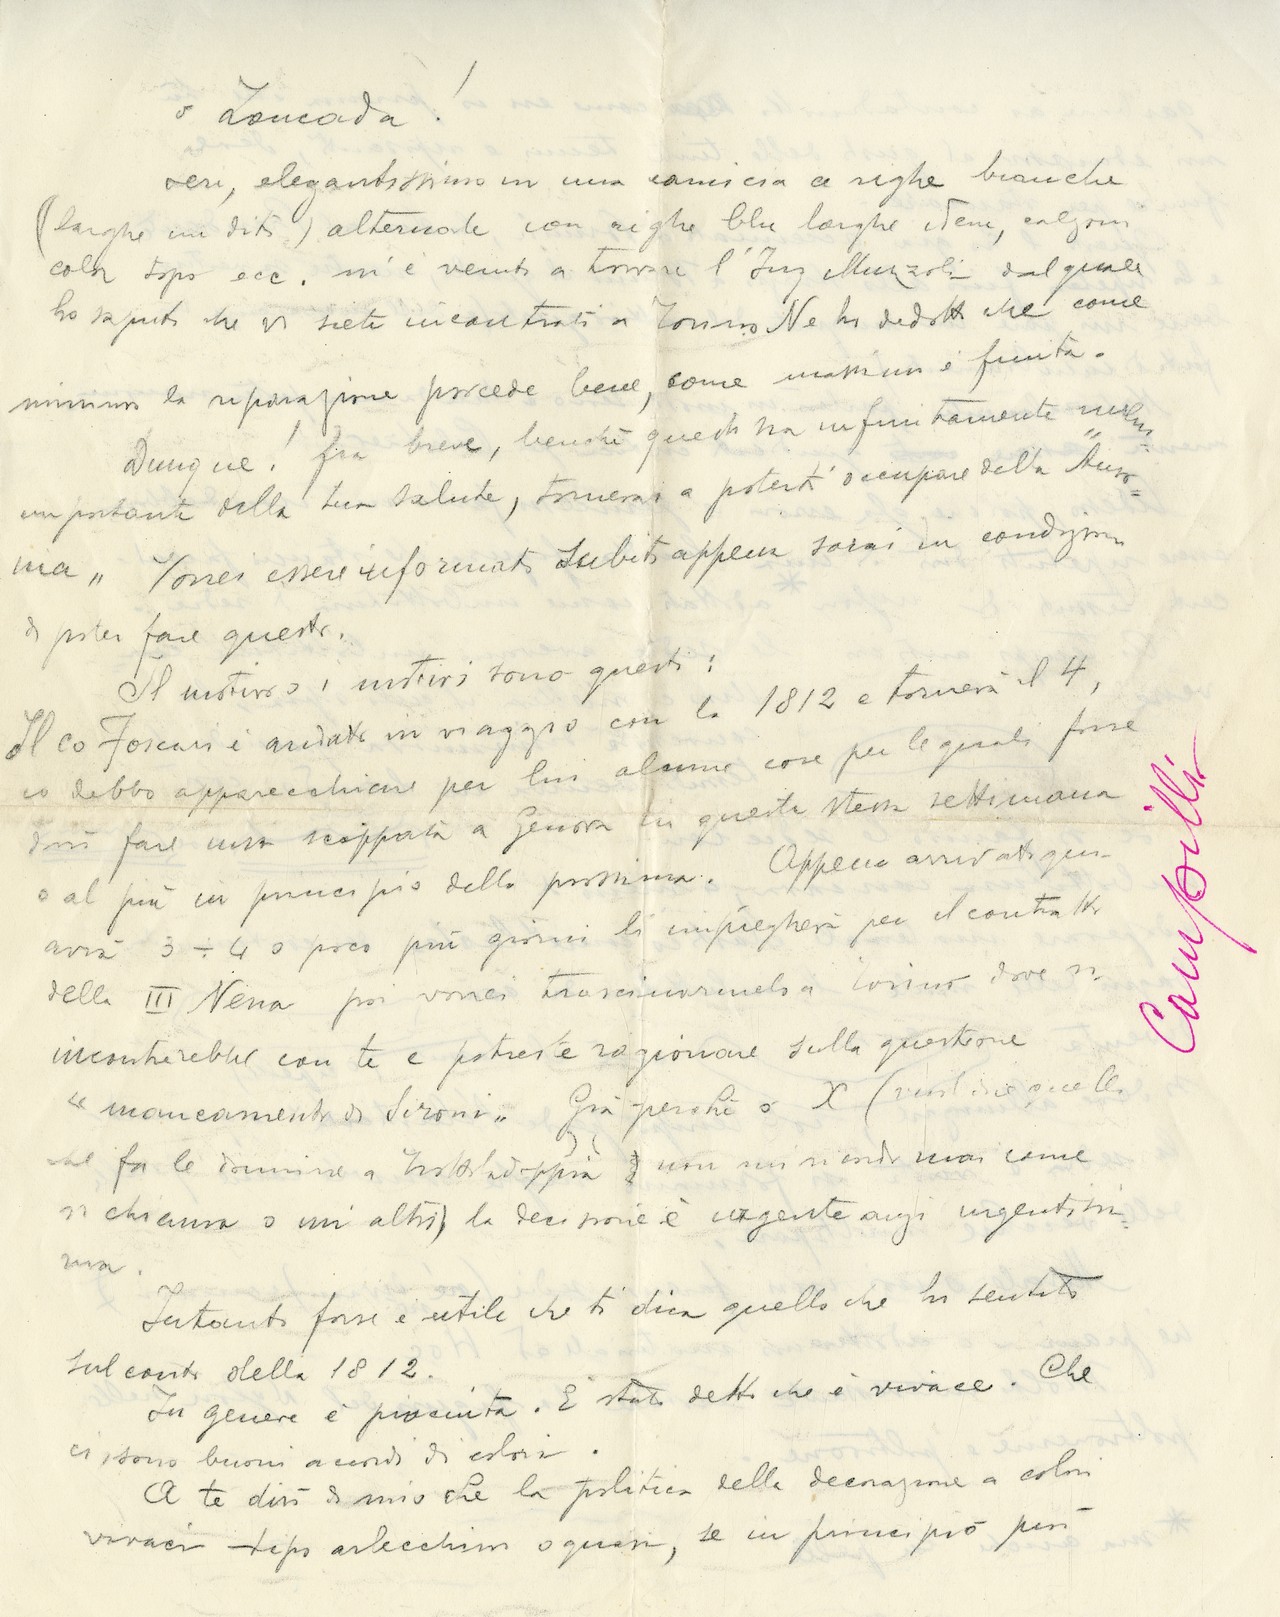 o Zoncada!
ieri, elegantissimo in una camicia a righe bianche
(larghe un dito) alternate con righe blu larghe idem, calzoni
color topo ecc. m'è venuto a trovare l'Ing Muzzoli dal quale
ho saputo che vi siete incontrati a Torino. Ne ho dedotto che come
minimo la riparazione procede bene, come massimo è finita.
Dunque! fra breve, benchè questo sia infinitamente meno
importante della tua salute, tornerai a poterti occupare della "Auso=
nia" Vorrei essere informato subito appena sarai in condizioni
di poter fare questo.
Il motivo o i motivi sono questi:
Il co Foscari è andato in viaggio con la 1812 e tornerà il 4,
io debbo apparecchiare per lui alcune cose per le quali forse
dovrò fare una scappata a Genova in questa stessa settimana
o al più in principio della prossima. Appena arrivato qui
avrà 3 ÷ 4 o poco più giorni li impiegherà per il contratto
della III Nena poi vorrei trascinarmelo a Torino dove si
incontrerebbe con te e potreste ragionare sulla questione
"mancamento di Sironi" Già perchè o X (vuol dire quello
che fa le donnine a trottola doppia non mi ricordo mai come
si chiama o un altro) la decisione è urgente anzi urgentissi=
ma.
Intanto forse è utile che ti dica quello che ho sentito
sul conto della 1812.
In genere è piaciuta. È stato detto che è vivace. Che
ci sono buoni accordi di colori.
A te dirò di mio che la politica della decorazione a colori
vivaci tipo arlecchino o quasi, se in principio può
Campilli